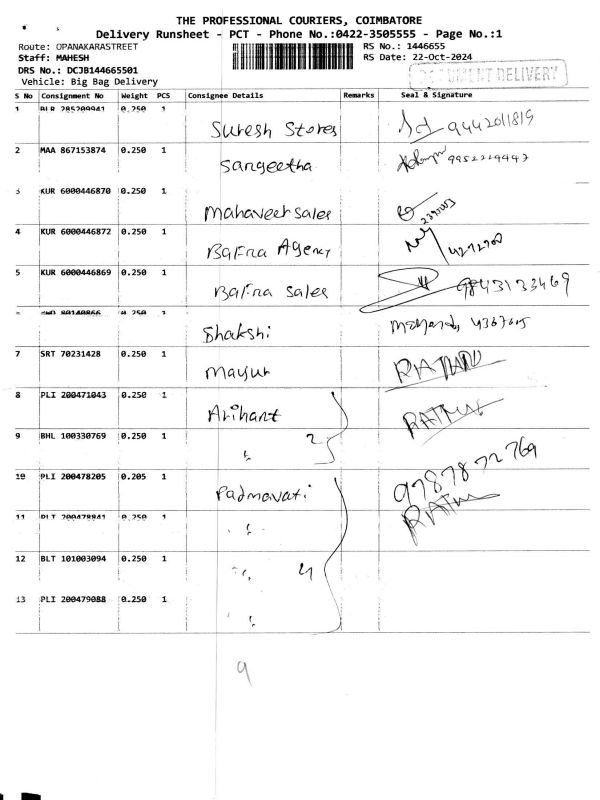 THE PROFESSIONAL COURIERS, COIMBATORE
Delivery Runsheet - PCT - Phone No.:0422-3505555 - Page No.:1
Route: OPANAKARASTREET RS No.: 1446655
Staff: MAHESH RS Date: 22-Oct-2024
DRS No.: DCJB144665501
DOCUMENT DELIVERY
Vehicle: Big Bag Delivery
S No Consignment No Weight PCS Consignee Details Remarks Seal & Signature
1 BLR 285209941 0.250 1
Suresh Stores 9442011819
2 MAA 867153874 0.250 1
Sangeetha 9952229447
3 KUR 6000446870 0.250 1
Mahaveer sales
4 KUR 6000446872 0.250 1
Bafna Agency
5 KUR 6000446869 0.250 1
Bafna Sales 9843133469
80140866 0.250 1
Shakshi
7 SRT 70231428 0.250 1
Mayur
8 PLI 200471043 0.250 1
Arihant
9 BHL 100330769 0.250 1
" 2
10 PLI 200478205 0.205 1
Padmavati 9787872769
11 PLI 200478841 0.250 1
"
12 BLT 101003094 0.250 1
" 4
13 PLI 200479088 0.250 1
"
9